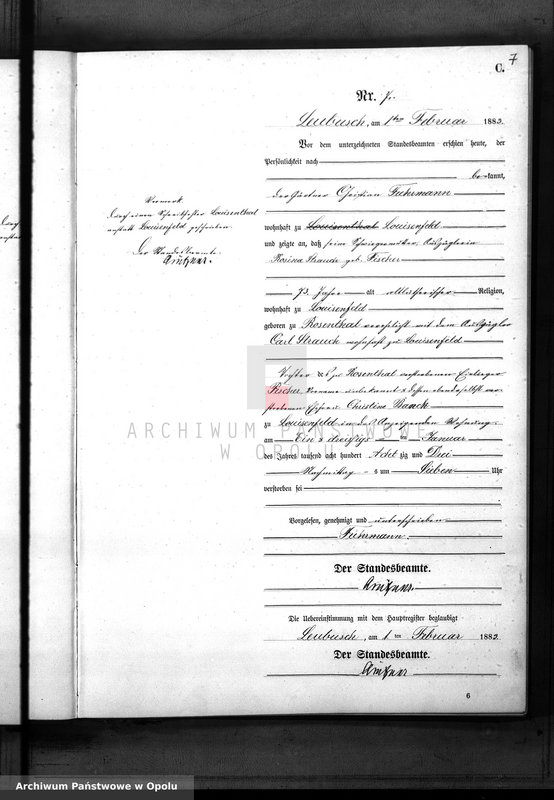 7
C.
Nr. 7.
Leubusch, am 1ten Februar 1883.
Vor dem unterzeichneten Standesbeamten erschien heute, der
Persönlichkeit nach
bekannt,
der Gärtner Christian Fuhrmann
wohnhaft zu Louisenthal Louisenfeld
und zeigte an, daß seine Schwiegermutter, Auszüglerin
Rosina Strauch geb. Fischer
73 Jahre alt altlutherischer Religion,
wohnhaft zu Louisenfeld
geboren zu Rosenthal verehelicht mit dem Auszügler
Carl Strauch wohnhaft zu Louisenfeld
Tochter des zu Rosenthal verstorbenen Einlieger
Fischer, Vorname unbekannt & dessen ebendaselbst ver-
storbenen Ehefrau Christine
zu Louisenfeld in des Anzeigenden Wohnung
am Ein & dreißigsten Januar
des Jahres tausend acht hundert Achtzig und Drei
Nachmittag um Sieben Uhr
verstorben sei
Vorgelesen, genehmigt und unterschrieben
Fuhrmann.
Der Standesbeamte.
Die Uebereinstimmung mit dem Hauptregister beglaubigt
Leubusch, am 1ten Februar 1883.
Der Standesbeamte.
6
Vermerk
Louisenthal
anstatt Louisenfeld geschrieben
Der Standesbeamte.
ARCHIWUM PAŃSTWOWE
W OPOLU
Archiwum Państwowe w Opolu